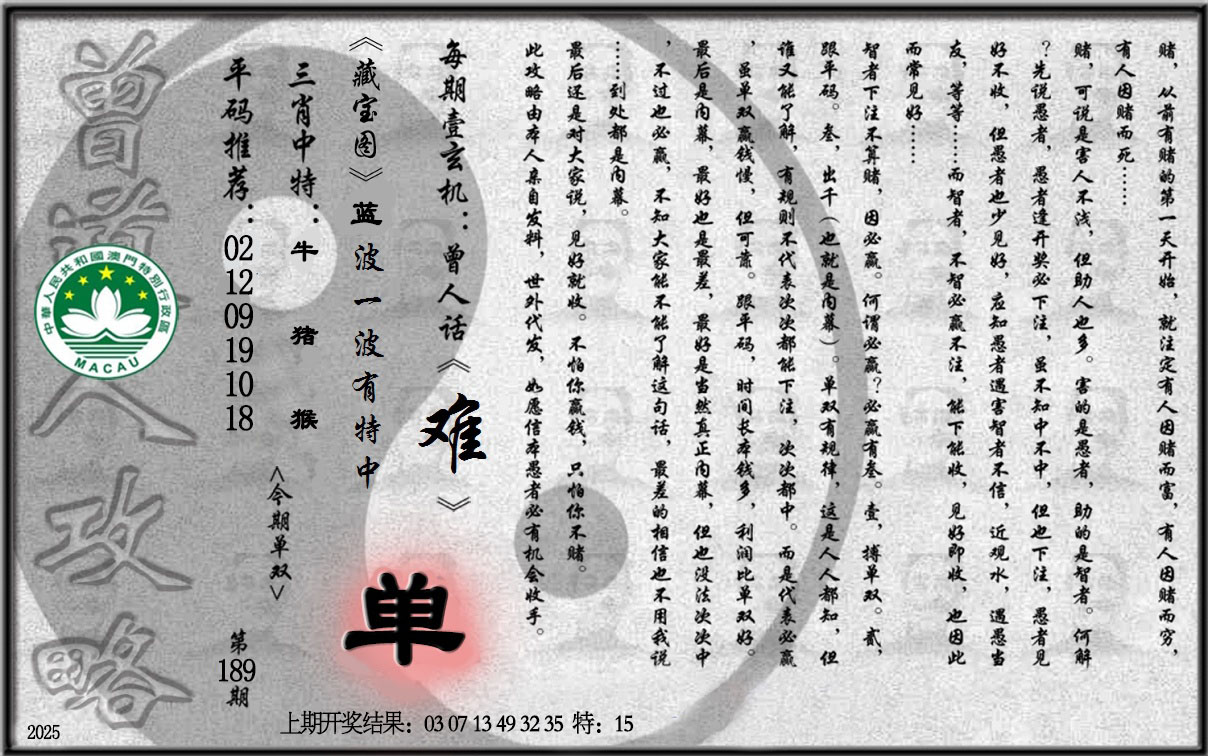 赌，从前有赌的第一天开始，就注定有人因赌而富，有人因赌而穷，
有人因赌而死……
赌，可说是害人不浅，但助人也多。害的是愚者，助的是智者。何解
？先说愚者，愚者逢开奖必下注，虽不知中不中，但也下注，愚者见
好不收，但愚者也少见好，应知愚者遇害智者不信，近观水，遇愚当
友，等等……而智者，不智必赢不注，能下能收，见好即收，也因此
而常见好……
智者下注不算赌，因必赢。何谓必赢？必赢有叁。壹，搏单双。贰，
跟平码。叁，出千（也就是内幕）。单双有规律，这是人人都知，但
谁又能了解，有规则不代表次次都能下注，次次都中。而是代表必赢
，虽单双赢钱慢，但可靠。跟平码，时间长本钱多，利润比单双好。
最后是内幕，最好也是最差，最好是当然真正内幕，但也没法次次中
，不过也必赢，不知大家能不能了解这句话，最差的相信也不用我说
……到处都是内幕。
最后还是对大家说，见好就收。不怕你赢钱，只怕你不赌。
此攻略由本人亲自发料，世外代发，如愿信本愚者必有机会收手。
每期壹玄机：曾人话《难》
《藏宝图》蓝波一波有特中
三肖中特：牛 猪 猴
平码推荐：02 12 09 19 10 18
<今期单双>
单
第189期
曾道人攻略
中華人民共和國澳門特別行政區
MACAU
上期开奖结果：03 07 13 49 32 35 特：15
2025